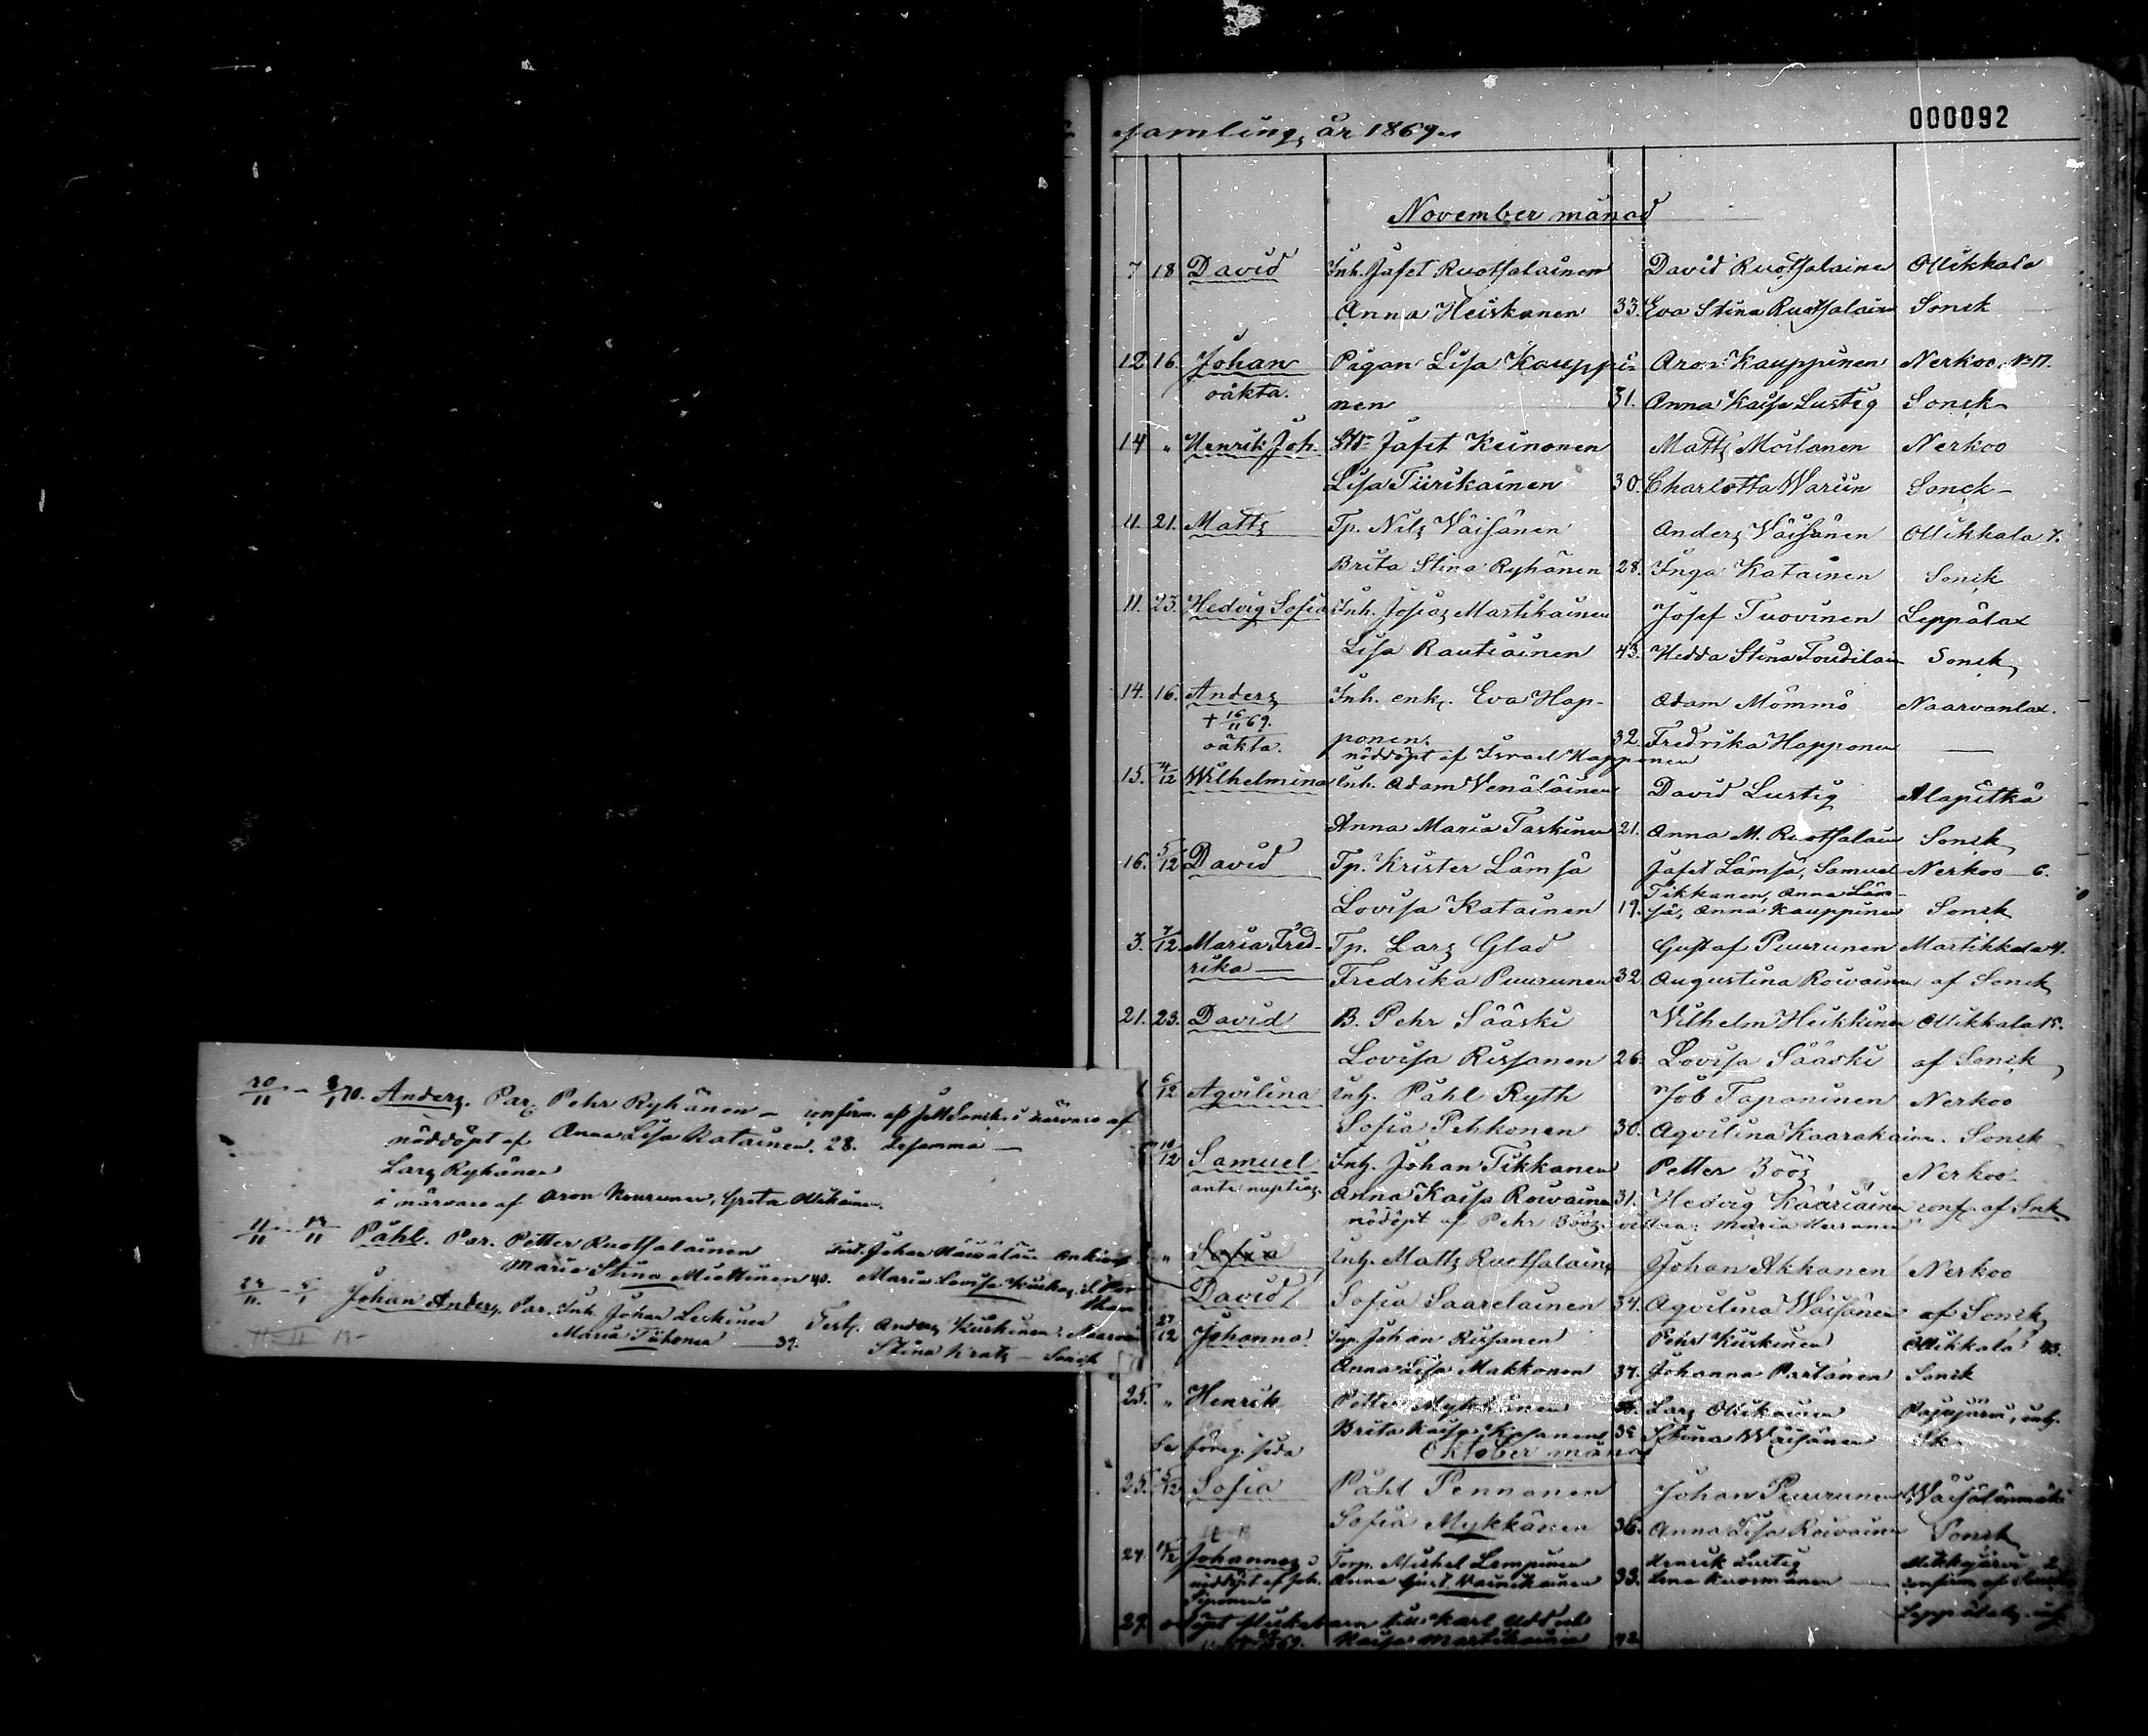 samling, år 1869.
000092
November månad
7 18 David Inh. Jafet Ruotsalainen David Ruotsalainen Ollikkala
Anna Heiskanen 33. Eva Stina Ruotsalain Sonck
12 16. Johan Pigan Lisa Kauppi= Aron Kauppinen Nerkoo, No 17.
oäkta. nen 31. Anna Kaisa Lustig Sonck
14 " Henrik Joh. Jafet Keinonen Matts Moilanen Nerkoo
Lisa Tiirikainen 30. Charlotta Warén Sonck
11. 21. Matts Tp. Nils Väisänen Anders Väisänen Ollikkala 7.
Brita Stina Ryhänen 28. Inga Katainen Sonck
11. 23. Hedvig Sofia Inh. Josias Martikainen Josef Tuovinen Leppälax
Lisa Rautiainen 43. Hedda Stina Sonck
14. 16. Anders Inh. enk. Eva Hap- Adam Mömmö Naarvanlax.
+ 16/11 69.
oäkta. ponen. 32. Fredrika Happonen —
nöddöpt af Israel Happonen
15. 4/12 Wilhelmina Inh. Adam Venäläinen David Lustig Alapitkä
Anna Maria Taskinen 21. Anna M. Ruotsalain Sonck
16. 5/12 David Tp. Krister Lämsä Jafet Lämsä, Samuel Nerkoo 6.
Tikkanen, Anna Läm-
Lovisa Katainen 19. sä, Anna Kauppinen Sonck
3. 7/12. Maria Fred- Tp. Lars Glad Gustaf Puurunen Martikkala 4.
rika — Fredrika Puurunen 32. Augustina Roivainen af Sonck
21. 23. David B. Pehr Sääski Vilhelm Heikkinen Ollikkala 15.
Lovisa Rissanen 26. Lovisa Sääski af Sonck
6/12 Aqvilina Inh. Påhl Ryth Job Taponinen Nerkoo
Sofia Pehkonen 30. Aqvilina Kaarakainen Sonck
10/12 Samuel Inh. Johan Tikkanen Petter Böös Nerkoo
ante nuptias. Anna Kaisa Roivainen 31. Hedvig Kääriäinen conf. af Snk
nöddöpt af Pehr Böös Maria
" Sofia Inh. Matts Ruotsalain Johan Akkanen Nerkoo
David Sofia Saarelainen 34. Aqvilina Väisänen af Sonck
27/12 Johanna Johan Rissanen Pehr Kuskinen Ollikkala 43.
Anna Lisa Makkonen 37. Johanna Partanen Sonck
25. " Henrik Petter Mykkänen Lars Ollikainen Pajujärvi, inh.
Se föreg. sida Brita Kaisa Kosonen 35 Stina Väisänen Sk
Oktober månad
25. 5/12 Sofia Påhl Pennanen Johan Puurunen Väisälänmäki
Sofia Mykkänen 36. Anna Lisa Roivainen Sonck
27 Johannes Torp. Michel Lempinen Henrik Lustig 2
nöddöpt af Joh. Anna Gust. Vainikainen 33. Lena Kuosmanen — confirm. af Sonck
Siponen
Leppälaks. inh.
29. till Karl Udd och
Kaisa Martikainen 42
20/11 – 8/1 70. Anders. Par. Pehr Ryhänen – confirm. af Sonck. i närvaro af
nöddöpt af Anna Lisa Katainen. 28. desamma —
Lars Ryhänen
i närvaro af Aron Nousunen, Greta Ollikainen.
Påhl. Par. Petter Ruotsalainen Test. Johan
Maria Stina Miettinen 40. Maria Lovisa
23/11. – 6/1 Johan Anders. Par. Inh. Johan Leskinen Test. Anders Kuskinen. Naarvan
Maria Tiihonen — 39. Stina Krats – Sonck